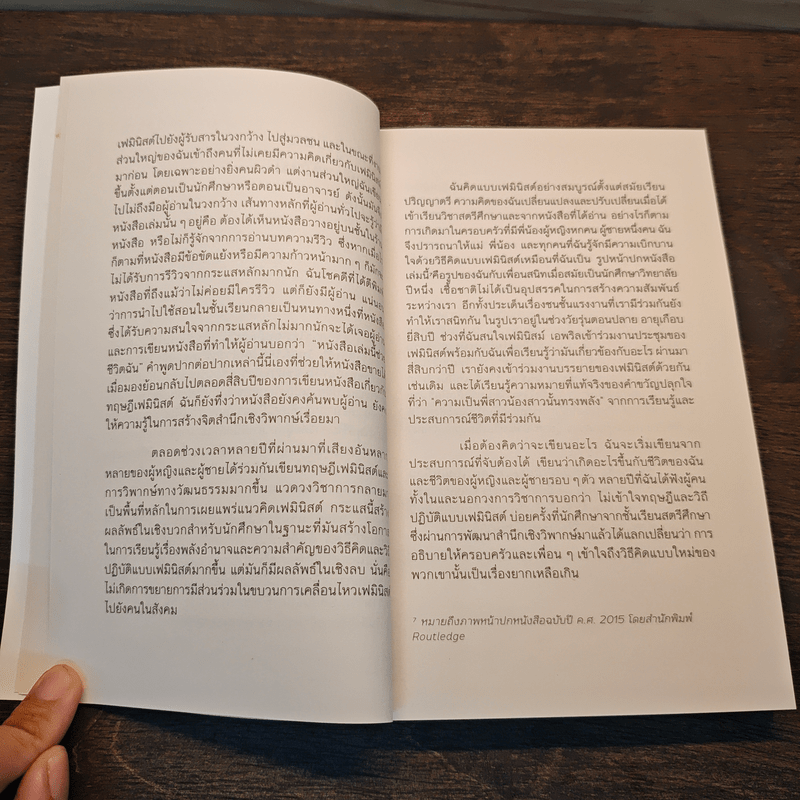 เฟมินิสต์ไปยังผู้รับสารในวงกว้าง ไปสู่มวลชน และในขณะที่งาน
ส่วนใหญ่ของฉันเข้าถึงคนที่ไม่เคยมีความคิดเกี่ยวกับเฟมินิสต์
มาก่อน โดยเฉพาะอย่างยิ่งคนผิวดำ แต่งานส่วนใหญ่ฉันเขียน
ขึ้นตั้งแต่ตอนเป็นนักศึกษาหรือตอนเป็นอาจารย์ ดังนั้นมัน
ไปไม่ถึงมือผู้อ่านในวงกว้าง เส้นทางหลักที่ผู้อ่านทั่วไปจะรู้
หนังสือเล่มนั้น ๆ อยู่คือ ต้องได้เห็นหนังสือวางอยู่บนชั้นในร้าน
หนังสือ หรือไม่ก็รู้จักจากการอ่านบทความรีวิว ซึ่งหาก
ก็ตามที่หนังสือมีข้อขัดแย้งหรือมีความก้าวหน้ามาก ๆ ก็มัก
ไม่ได้รับการรีวิวจากกระแสหลักมากนัก ฉันโชคดีที่ได้ตีพิมพ์
หนังสือที่ถึงแม้ว่าไม่ค่อยมีใครรีวิว แต่ก็ยังมีผู้อ่าน แน่นอน
ว่าการนำไปใช้สอนในชั้นเรียนกลายเป็นหนทางหนึ่งที่หนังสือ
ซึ่งได้รับความสนใจจากกระแสหลักไม่มากนักจะได้เจอผู้อ่าน
และการเขียนหนังสือที่ทำให้ผู้อ่านบอกว่า “หนังสือเล่มนี้ช่วย
ชีวิตฉัน” คำพูดปากต่อปากเหล่านี้นี่เองที่ช่วยให้หนังสือขายได้
เมื่อมองย้อนกลับไปตลอดสี่สิบปีของการเขียนหนังสือเกี่ยวกับ
ทฤษฎีเฟมินิสต์ ฉันก็ยิ่งทึ่งว่าหนังสือยังคงค้นพบผู้อ่าน ยังคง
ให้ความรู้ในการสร้างจิตสำนึกเชิงวิพากษ์เรื่อยมา
ตลอดช่วงเวลาหลายปีที่ผ่านมาที่เสียงอันหลาก
หลายของผู้หญิงและผู้ชายได้ร่วมกันเขียนทฤษฎีเฟมินิสต์และ
การวิพากษ์ทางวัฒนธรรมมากขึ้น แวดวงวิชาการกลายมา
เป็นพื้นที่หลักในการเผยแพร่แนวคิดเฟมินิสต์ กระแสนี้สร้าง
ผลลัพธ์ในเชิงบวกสำหรับนักศึกษาในฐานะที่มันสร้างโอกาส
ในการเรียนรู้เรื่องพลังอำนาจและความสำคัญของวิธีคิดและวิถี
ปฏิบัติแบบเฟมินิสต์มากขึ้น แต่มันก็มีผลลัพธ์ในเชิงลบ นั่นคือ
ไม่เกิดการขยายการมีส่วนร่วมในขบวนการเคลื่อนไหวเฟมินิสต์
ไปยังคนในสังคม
ฉันคิดแบบเฟมินิสต์อย่างสมบูรณ์ตั้งแต่สมัยเรียน
ปริญญาตรี ความคิดของฉันเปลี่ยนแปลงและปรับเปลี่ยนเมื่อได้
เข้าเรียนวิชาสตรีศึกษาและจากหนังสือที่ได้อ่าน อย่างไรก็ตาม
การเกิดมาในครอบครัวที่มีพี่น้องผู้หญิงหกคน ผู้ชายหนึ่งคน ฉัน
จึงปรารถนาให้แม่ พี่น้อง และทุกคนที่ฉันรู้จักมีความเบิกบาน
ใจด้วยวิธีคิดแบบเฟมินิสต์เหมือนที่ฉันเป็น รูปหน้าปกหนังสือ
เล่มนี้⁷คือรูปของฉันกับเพื่อนสนิทเมื่อสมัยเป็นนักศึกษาวิทยาลัย
ปีหนึ่ง เชื้อชาติไม่ได้เป็นอุปสรรคในการสร้างความสัมพันธ์
ระหว่างเรา อีกทั้งประเด็นเรื่องชนชั้นแรงงานที่เรามีร่วมกันยัง
ทำให้เราสนิทกัน ในรูปเราอยู่ในช่วงวัยรุ่นตอนปลาย อายุเกือบ
ยี่สิบปี ช่วงที่ฉันสนใจเฟมินิสม์ เอพวิลเข้าร่วมงานประชุมของ
เฟมินิสต์พร้อมกับฉันเพื่อเรียนรู้ว่ามันเกี่ยวข้องกับอะไร ผ่านมา
สี่สิบกว่าปี เรายังคงเข้าร่วมงานบรรยายของเฟมินิสต์ด้วยกัน
เช่นเดิม และได้เรียนรู้ความหมายที่แท้จริงของคำขวัญปลุกใจ
ที่ว่า “ความเป็นพี่สาวน้องสาวนั้นทรงพลัง” จากการเรียนรู้และ
ประสบการณ์ชีวิตที่มีร่วมกัน
เมื่อต้องคิดว่าจะเขียนอะไร ฉันจะเริ่มเขียนจาก
ประสบการณ์ที่จับต้องได้ เขียนว่าเกิดอะไรขึ้นกับชีวิตของฉัน
และชีวิตของผู้หญิงและผู้ชายรอบ ๆ ตัว หลายปีที่ฉันได้ฟังผู้คน
ทั้งในและนอกวงการวิชาการบอกว่า ไม่เข้าใจทฤษฎีและวิถี
ปฏิบัติแบบเฟมินิสต์ บ่อยครั้งที่นักศึกษาจากชั้นเรียนสตรีศึกษา
ซึ่งผ่านการพัฒนาสำนึกเชิงวิพากษ์มาแล้วได้แลกเปลี่ยนว่า การ
อธิบายให้ครอบครัวและเพื่อน ๆ เข้าใจถึงวิธีคิดแบบใหม่ของ
พวกเขานั้นเป็นเรื่องยากเหลือเกิน
⁷ หมายถึงภาพหน้าปกหนังสือฉบับปี ค.ศ. 2015 โดยสำนักพิมพ์
Routledge